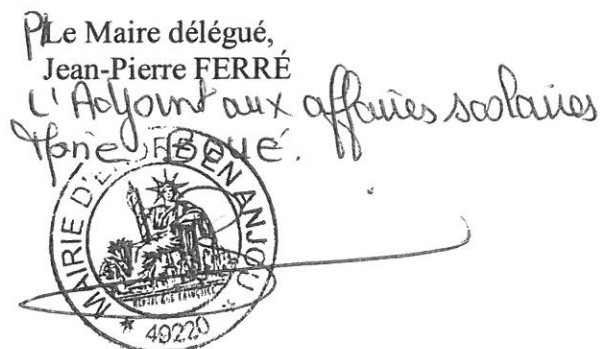 P/Le Maire délégué,
Jean-Pierre FERRÉ
L'Adjoint aux affaires scolaires
MAIRIE D'ERDRE EN ANJOU
RÉPUBLIQUE FRANÇAISE
* 49220